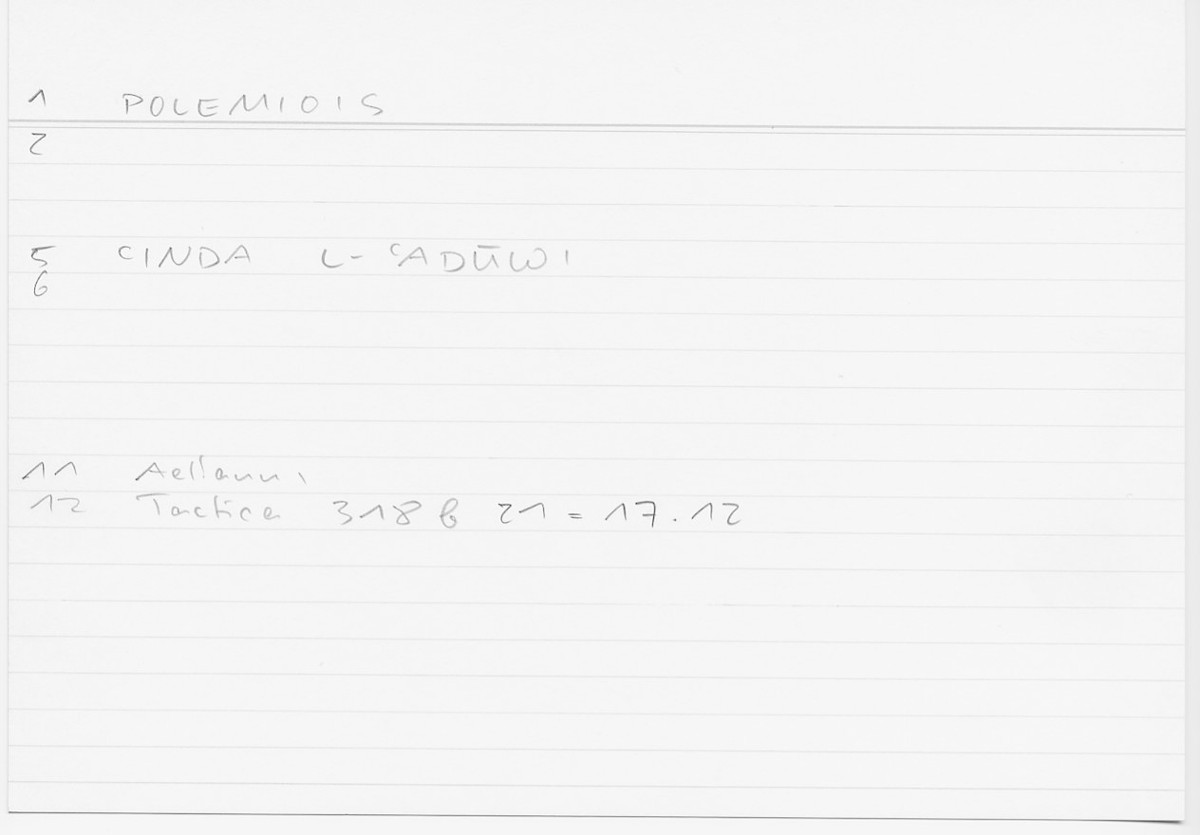 1 POLEMIOIS
2
5 ʿINDA L-ʿADŪWI
6
11 Aeliani
12 Tactica 318 b 21 = 17.12